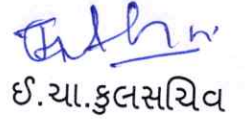 ઈ.ચા.કુલસચિવ